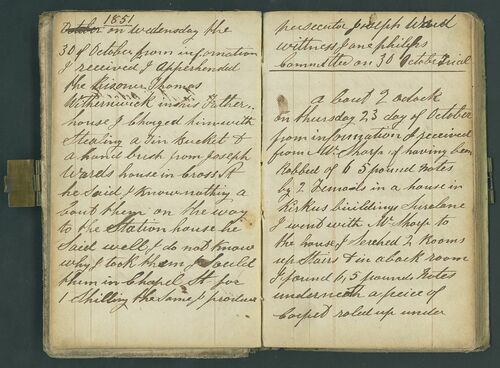 1851
October on Wednesday the
30 of October from information
I received I apperhended
the Prisoner Thomas
Withernwick in his Father
house I Charged him with
Stealing a Tin Bucket &
a hand brush from Joseph
Wards house in Cross St
he Said I know nothing a
bout them on the way
to the Station house he
Said well I do not know
why I took them I Sould
them in Chapel St for
1 Shilling the Same I produce
persecutor Joseph Ward
wittness Jane philips
Committee on 30 October Trial
a bout 2 oclock
on thursday 23 day of October
from information I received
from Mr Sharp of having been
Robbed of 6 5 pound Notes
by 2 Femails in a house in
Kirkus building
I went with Mr Sharp to
the house I Serched 2 Rooms
up Stairs & in a back room
I found 6, 5 pounds Notes
underneath a peice of
Carpet roled up under